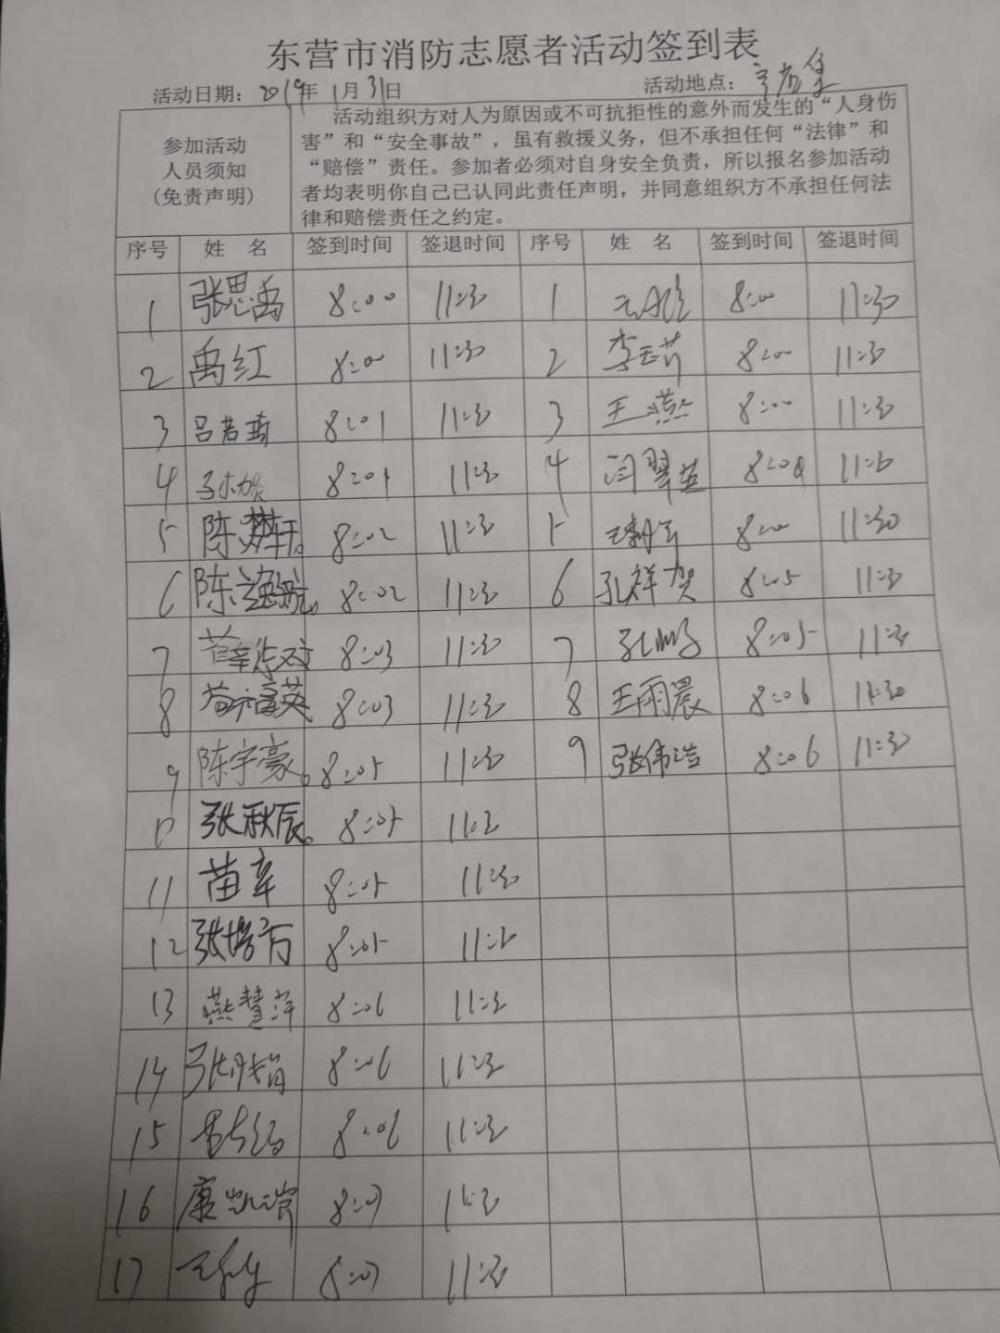 东营市消防志愿者活动签到表
活动日期：2019年1月31日 活动地点：
参加活动
人员须知
(免责声明)
活动组织方对人为原因或不可抗拒性的意外而发生的“人身伤
害”和“安全事故”，虽有救援义务，但不承担任何“法律”和
“赔偿”责任。参加者必须对自身安全负责，所以报名参加活动
者均表明你自己己认同此责任声明，并同意组织方不承担任何法
律和赔偿责任之约定。
序号 姓 名 签到时间 签退时间 序号 姓 名 签到时间 签退时间
1 张思禹 8:00 11:30 1 8:00 11:30
2 禹红 8:00 11:30 2 8:00 11:30
3 8:01 11:30 3 王燕 8:00 11:30
4 8:01 11:30 4 闫翠英 8:04 11:30
5 陈 8:02 11:30 5 8:00 11:30
6 陈 8:02 11:30 6 孔祥贺 8:05 11:30
7 8:03 11:30 7 孔鹏 8:05 11:30
8 8:03 11:30 8 王雨晨 8:06 11:30
9 陈宇豪 8:05 11:30 9 张伟浩 8:06 11:30
10 张秋辰 8:05 11:30
11 苗辛 8:05 11:30
12 张培 8:05 11:30
13 燕慧萍 8:06 11:30
14 8:06 11:30
15 8:06 11:30
16 康凯 8:07 11:30
17 8:07 11:30